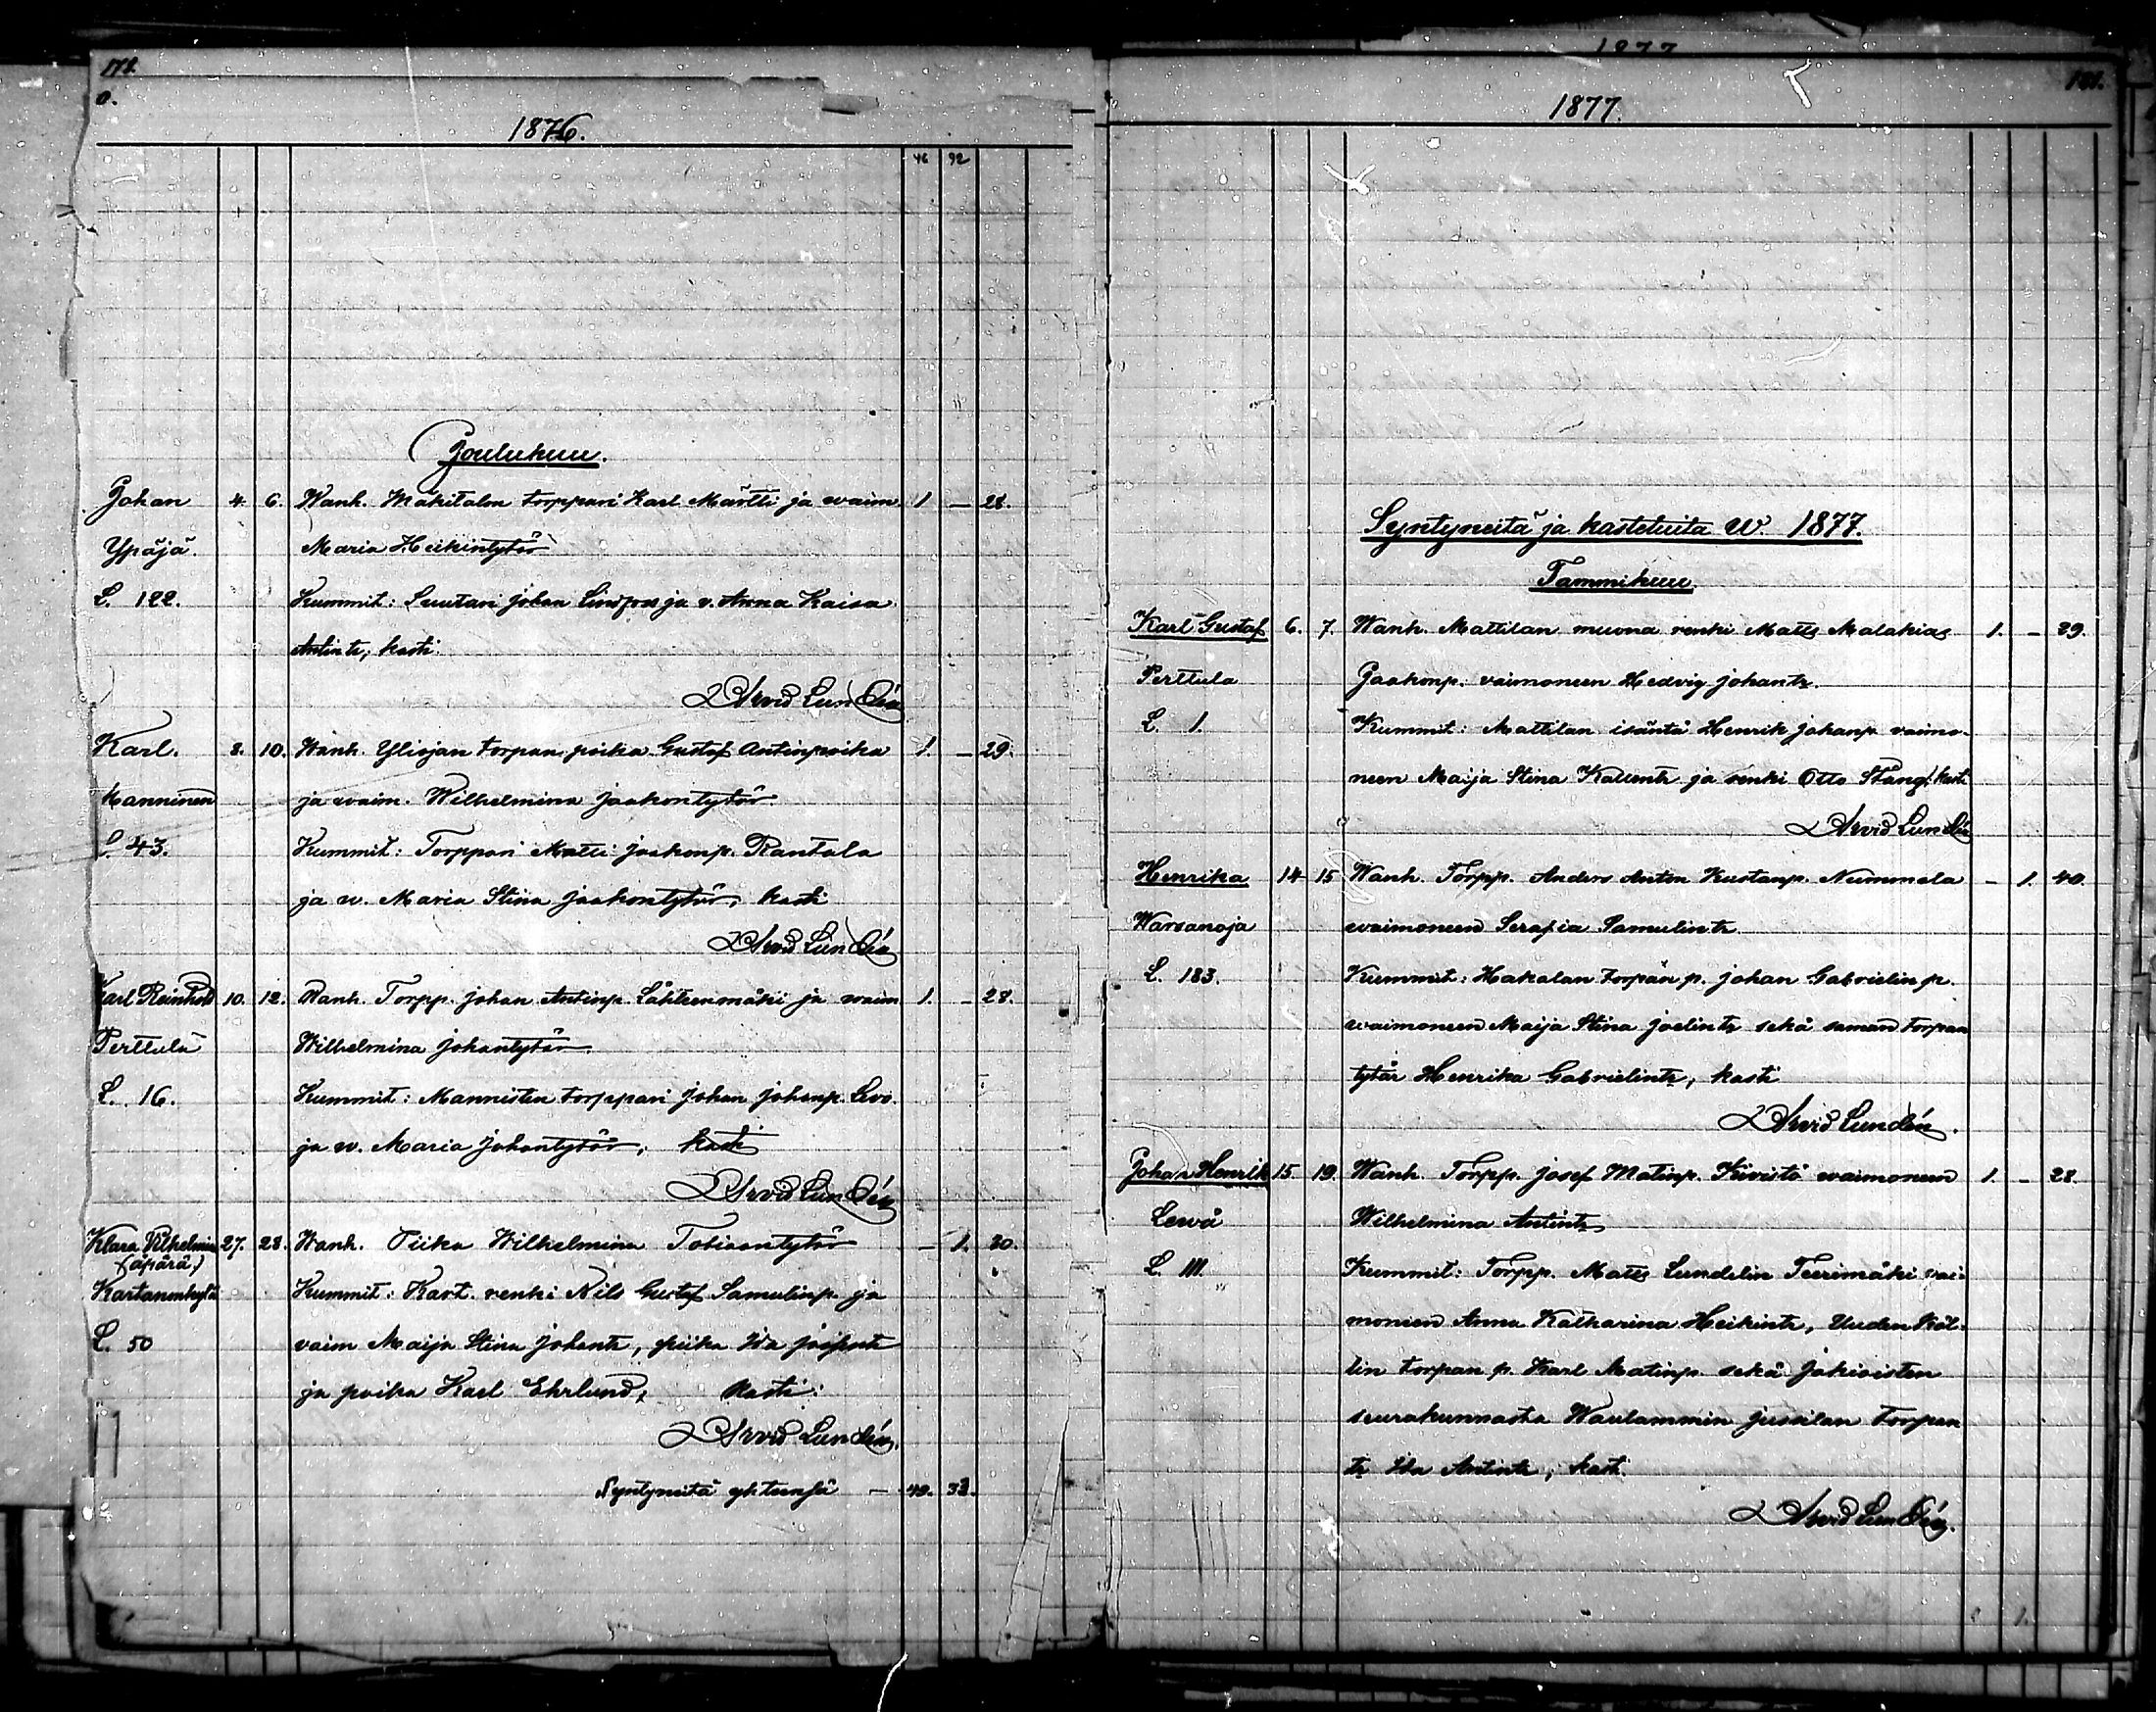 1876.
46 92
Joulukuu.
Johan 4. 6. Wanh. Mäkitalon torppari Karl Märtti ja waim. 1. — 28.
Ypäjä. Maria Heikintytär
L. 122. Kummit: Suutari Johan Lindfors ja v. Anna Kaisa
Antintr, kasti:
Arvid Lundén
Karl. 8. 10. Wanh. Yliojan torpan poika Gustaf Antinpoika 1. — 29.
Manninen ja waim. Wilhelmina Jaakontytär
L. 43. Kummit: Torppari Matti Jaakonp. Rantala
ja w. Maria Stina Jaakontytär, kasti
Arvid Lundén
Karl Reinhold 10. 12. Wanh. Torpp. Johan Antinp. Lähteenmäki ja waim 1. — 28.
Perttula Wilhelmina Johantytär.
L. 16. Kummit: Mannisten torppari Johan Johanp. Levo
ja w. Maria Johantytär, kasti
Arvid Lundén
Klara Wilhelmina 27. 28. Wanh. Piika Wilhelmina Tobiaantytär — 1. 30.
(äpärä)
Kartanonkylä Kummit: Kart. renki Nils Gustaf Samulinp. ja
L. 50 vaim Maija Stina Johantr, piika Ida
ja poika Karl Ehrlund, Kasti:
Arvid Lundén
Syntyneitä yhteensä — 40. 32.
1877
1877.
181.
Syntyneitä ja kastetuita w. 1877.
Tammikuu.
Karl Gustaf 6. 7. Wanh. Mattilan muona renki Matts Malakias 1. — 29.
Perttula Jaakonp. vaimoneen Hedvig Johantr.
L. 1. Kummit: Mattilan isäntä Henrik Johanp. vaimo-
neen Maija Stina Kallentr ja renki Otto Stång, kasti
Arvid Lundén
Henrika 14 15 Wanh. Torpp. Anders Anton Kustaanp. Nummela — 1. 40.
Warsanoja waimoneen Serafia Samulintr.
L. 183. Kummit: Hakalan torpan p. Johan Gabrielinp.
waimoneen Maija Stina Joelintr sekä saman torpan
tytär Henrika Gabrielintr, kasti
Arvid Lundén.
Johan Henrik 15 19. Wanh. Torpp. Josef Matinp. Kivistö waimoneen 1. — 28.
Levä Wilhelmina Antintr
L. 111. Kummit: Torpp. Matts Lundelin Teerimäki vai-
moneen Anna Katharina Heikintr, Uuden Köl-
lin torpan p. Karl Matinp. sekä Jokioisten
seurakunnasta Waulammin Jussilan torpan
tr Ida Antintr, kasti.
Arvid Lundén.